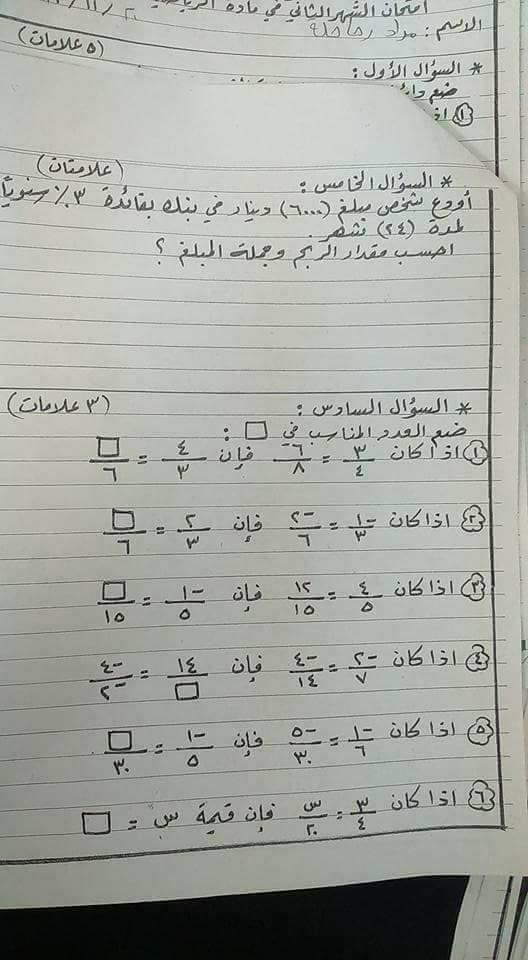 امتحان الشهر الثاني في مادة
الاسم : مراد
(٥ علامات)
* السؤال الأول :
ضع
١
* السؤال الخامس : (علامتان)
أودع شخص مبلغ (٦٠٠٠) دينار في بنك بفائدة ٣٪ سنوياً
لمدة (٢٤) شهر .
احسب مقدار الربح وجملة المبلغ ؟
* السؤال السادس : (٣ علامات)
ضع العدد المناسب في □ :
١ اذا كان ٣/٤ = ٦/٨ فإن ٤/٣ = □/٦
٢ اذا كان -١/٣ = -٢/٦ فإن ٢/٣ = □/٦
٣ اذا كان ٤/٥ = ١٢/١٥ فإن -١/٥ = □/١٥
٤ اذا كان -٢/٧ = -٤/١٤ فإن ١٤/□ = -٤/-٢
٥ اذا كان -١/٦ = -٥/٣٠ فإن -١/٥ = □/٣٠
٦ اذا كان ٣/٤ = س/٢٠ فإن قيمة س = □